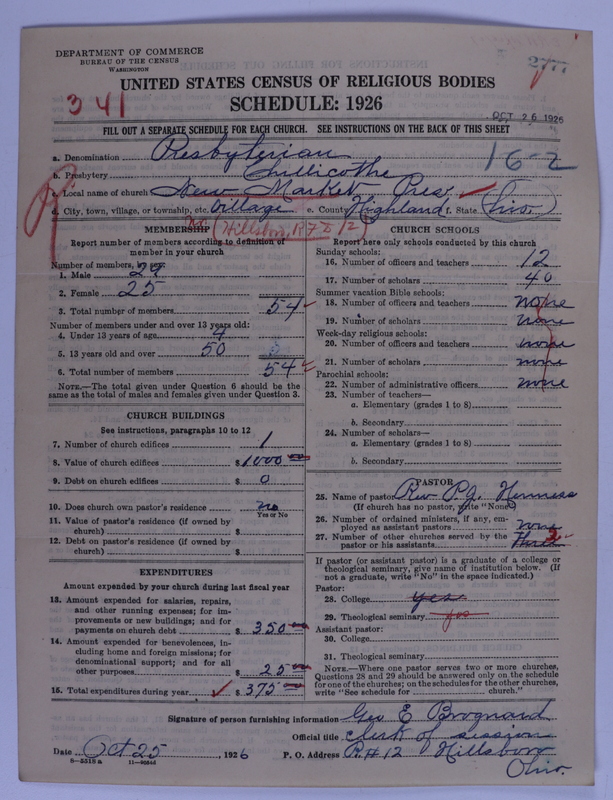 DEPARTMENT OF COMMERCE
BUREAU OF THE CENSUS
WASHINGTON
2777
UNITED STATES CENSUS OF RELIGIOUS BODIES
341
SCHEDULE: 1926
OCT 26 1926
FILL OUT A SEPARATE SCHEDULE FOR EACH CHURCH. SEE INSTRUCTIONS ON THE BACK OF THIS SHEET
a. Denomination Presbyterian
16-2
b. Presbytery Chillicothe
c. Local name of church New Market Pres.
d. City, town, village, or township, etc. Village e. County Highland f. State Ohio.
(Hillsboro, RFD 12)
MEMBERSHIP
Report number of members according to definition of
member in your church
Number of members, by sex:
1. Male 29
2. Female 25
3. Total number of members 54
Number of members under and over 13 years old:
4. Under 13 years of age 4
5. 13 years old and over 50
6. Total number of members 54
NOTE.—The total given under Question 6 should be the
same as the total of males and females given under Question 3.
CHURCH BUILDINGS
See instructions, paragraphs 10 to 12
7. Number of church edifices 1
8. Value of church edifices $ 1000
9. Debt on church edifices $ 0
10. Does church own pastor's residence no
Yes or No
11. Value of pastor's residence (if owned by
church) $
12. Debt on pastor's residence (if owned by
church) $
EXPENDITURES
Amount expended by your church during last fiscal year
13. Amount expended for salaries, repairs,
and other running expenses; for im-
provements or new buildings; and for
payments on church debt $ 350
14. Amount expended for benevolences, in-
cluding home and foreign missions; for
denominational support; and for all
other purposes $ 25
15. Total expenditures during year $ 375
CHURCH SCHOOLS
Report here only schools conducted by this church
Sunday schools:
16. Number of officers and teachers 12
17. Number of scholars 40
Summer vacation Bible schools:
18. Number of officers and teachers none
19. Number of scholars none
Week-day religious schools:
20. Number of officers and teachers none
21. Number of scholars none
Parochial schools:
22. Number of administrative officers none
23. Number of teachers—
a. Elementary (grades 1 to 8)
b. Secondary
24. Number of scholars—
a. Elementary (grades 1 to 8)
b. Secondary
PASTOR
25. Name of pastor Rev P.J. Henness
(If church has no pastor, write "None")
26. Number of ordained ministers, if any, em-
ployed as assistant pastors none
27. Number of other churches served by the
pastor or his assistants Three 3
If pastor (or assistant pastor) is a graduate of a college or
theological seminary, give name of institution below. (If
not a graduate, write "No" in the space indicated.)
Pastor:
28. College yes
29. Theological seminary yes
Assistant pastor:
30. College
31. Theological seminary
NOTE.—Where one pastor serves two or more churches,
Questions 28 and 29 should be answered only on the schedule
for one of the churches; on the schedules for the other churches,
write "See schedule for church."
Signature of person furnishing information Geo E Brognard
Official title clerk of session
Date Oct 25, 1926 P. O. Address R.# 12 Hillsboro
Ohio.
8—5518 a